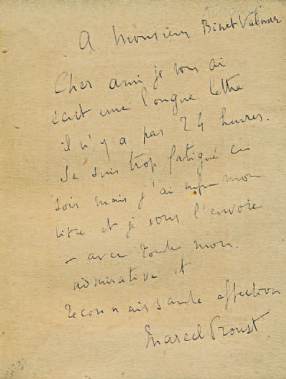 A Monsieur Binet Valmer
Cher ami je vous ai
écrit une longue lettre
il n'y a pas 24 heures.
Je suis trop fatigué ce
soir mais j'ai mon
livre et je vous l'envoie
avec toute mon
admirative et
reconnaissante affection
Marcel Proust